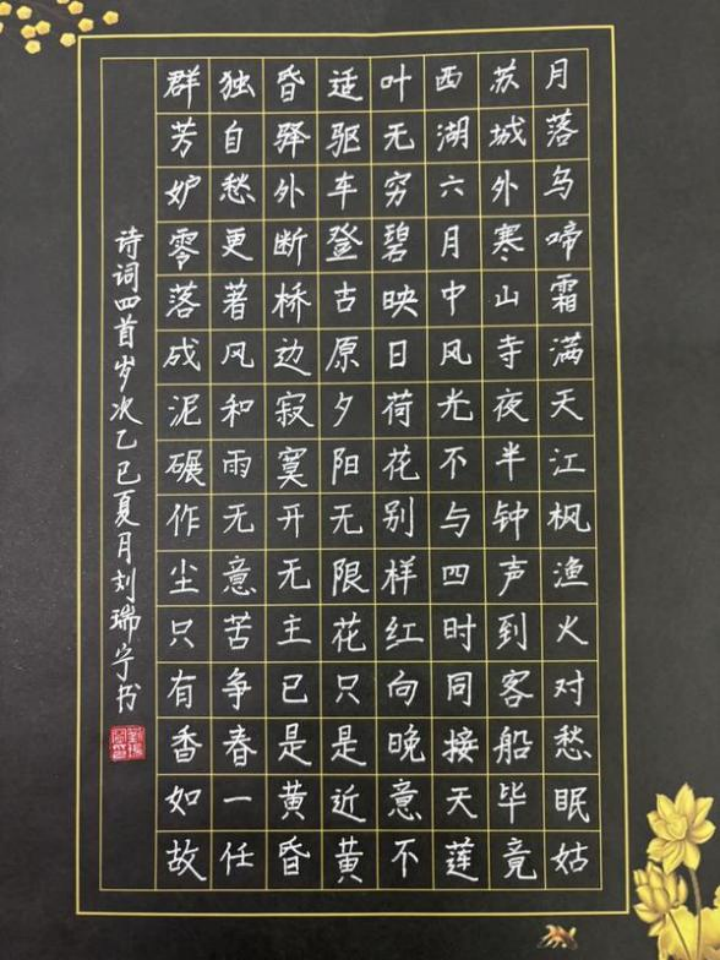 月落乌啼霜满天江枫渔火对愁眠姑
苏城外寒山寺夜半钟声到客船毕竟
西湖六月中风光不与四时同接天莲
叶无穷碧映日荷花别样红向晚意不
适驱车登古原夕阳无限花只是近黄
昏驿外断桥边寂寞开无主已是黄昏
独自愁更著风和雨无意苦争春一任
群芳妒零落成泥碾作尘只有香如故
诗词四首岁次乙巳夏月刘瑞宁书